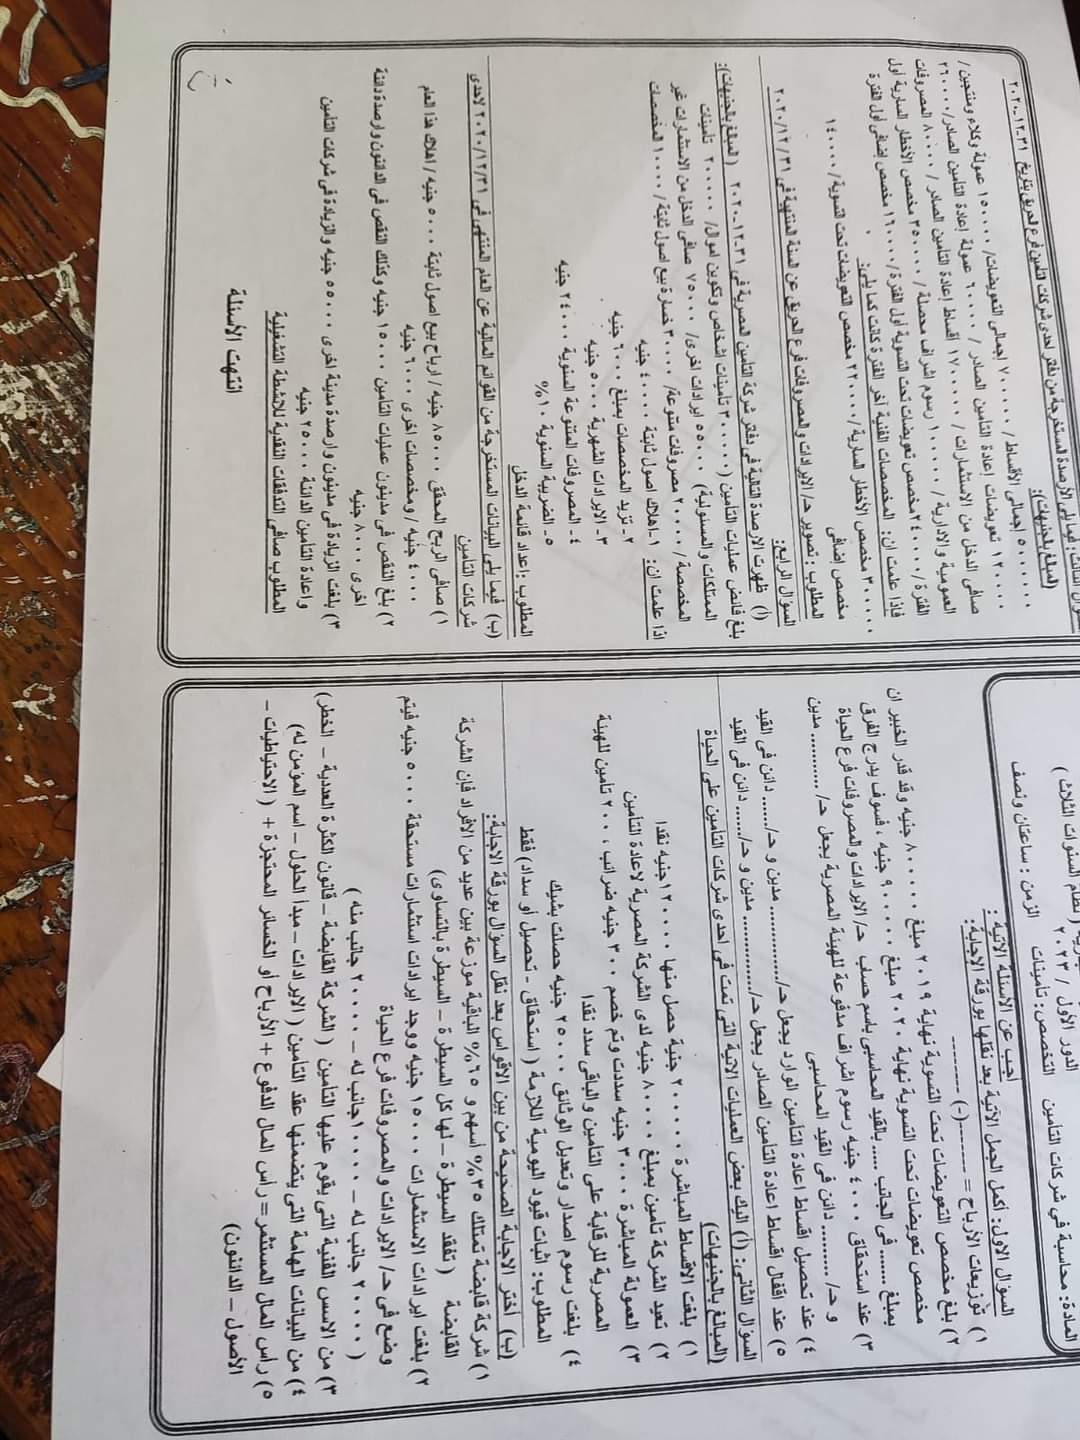 المادة: محاسبة في شركات التأمين
الدور الأول / ٢٠٢٣
التخصص: تأمينات الزمن : ساعتان ونصف
( نظام السنوات الثلاث )
أجب عن الأسئلة الآتية :
السؤال الاول: أكمل الجمل الآتية بعد نقلها بورقة الاجابة:
١) توزيعات الأرباح = -------- (-) --------
٢) بلغ مخصص التعويضات تحت التسوية نهاية ٢٠١٩ مبلغ ٨٠٠٠٠٠ جنيه وقد قدر الخبير ان
مخصص تعويضات تحت التسوية نهاية ٢٠٢٠ مبلغ ٩٠٠٠٠٠ جنيه ، فسوف يدرج الفرق
بمبلغ ....... فى الجانب ..... بالقيد المحاسبى باسم حساب حـ/ الايرادات والمصروفات فرع الحياة
٣) عند استحقاق ٤٠٠٠ جنيه رسوم اشراف مدفوعة للهيئة المصرية يجعل حـ/ ............ مدين
و حـ/ .......... دائن فى القيد المحاسبى
٤) عند تحصيل اقساط اعادة التأمين الوارد يجعل حـ/................ مدين و حـ/....... دائن فى القيد
٥) عند اقفال اقساط اعادة التأمين الصادر يجعل حـ/................ مدين و حـ/....... دائن فى القيد
السؤال الثانى: (أ) اليك بعض العمليات الاتية التى تمت فى احدى شركات التأمين على الحياة
(المبالغ بالجنيهات)
١) بلغت الاقساط المباشرة ٢٠٠٠٠٠ جنية حصل منها ١٢٠٠٠٠جنيه نقدا
٢) تعيد الشركة تأمين بمبلغ ٨٠٠٠٠ جنيه لدى الشركة المصرية لاعادة التأمين
٣) العمولة المباشرة ٣٠٠٠ جنيه سددت وتم خصم ٣٠٠ جنيه ضرائب ، ٢٠٠ تأمين للهيئة
المصرية للرقابة على التأمين والباقى سدد نقدا
٤) بلغت رسوم اصدار وتعديل الوثائق ٢٥٠٠٠ جنيه حصلت بشيك
المطلوب: اثبات قيود اليومية اللازمة ( استحقاق - تحصيل أو سداد) فقط
(ب) أختر الاجابة الصحيحة من بين الاقواس بعد نقل السؤال بورقة الاجابة:
١) شركة قابضة تمتلك ٣٥% أسهم و ٦٥% الباقية موزعة بين عديد من الافراد فإن الشركة
القابضة ( تفقد السيطرة – لها كل السيطرة – السيطرة بالتساوى)
٢) بلغت ايرادات الاستثمارات ١٥٠٠٠ جنيه ووجد ايرادات استثمارات مستحقة ٥٠٠٠ جنيه فيتم
وضع فى حـ/ الايرادات والمصروفات فرع الحياة
( ٢٠٠٠٠ جانب له – ١٠٠٠٠جانب له – ٢٠٠٠٠ جانب منه )
٣) من الاسس الفنية التى يقوم عليها التأمين (الشركة القابضة – قانون الكثرة العددية – الخطر)
٤) من البيانات الهامة التى يتضمنها عقد التأمين ( الايرادات – مبدأ الحلول – اسم المؤمن له)
٥) رأس المال المستثمر= رأس المال الدفوع + الأرباح أو الخسائر المحتجزة + ( الاحتياطيات –
الأصول – الدائنون)
السؤال الثالث: فيما يلى الأرصدة لمستخرجة من دفتر لحدى شركات التأمين فرع لحريق بتاريخ ٣١-١٢-٢٠٢٠
(لمبلغ بلجنيهات):
٥٠٠٠٠٠ اجمالى الأقساط / ٧٠٠٠٠ اجمالى التعويضات/ ١٥٠٠٠٠ عمولة وكلاء ومنتجين /
١٢٠٠٠٠ تعويضات إعادة التأمين الصادر / ٦٠٠٠٠ عمولة إعادة التأمين الصادر/ ٢٦٠٠٠٠
صافى الدخل من الاستثمارات / ١٧٠٠٠٠ أقساط إعادة التأمين الصادر / ٨٠٠٠٠ المصروفات
العمومية والادارية / ١٠٠٠٠ رسوم اشراف محصلة / ٣٥٠٠٠٠ مخصص الأخطار السارية أول
الفترة / ٢٤٠٠٠٠مخصص تعويضات تحت التسوية أول الفترة /١٦٠٠٠٠ مخصص إضافى أول الفترة
فاذا علمت ان: المخصصات الفنية آخر الفترة كانت كما يلى:
٣٠٠٠٠٠ مخصص الأخطار السارية / ٢٢٠٠٠٠ مخصص التعويضات تحت التسوية / ١٤٠٠٠٠
مخصص إضافى
المطلوب : تصوير حـ/ الايرادات والمصروفات فرع الحريق عن السنة المنتهية في ٢٠٢٠/١٢/٣١
السؤال الرابع:
(أ) ظهرت الارصدة التالية فى دفتر شركة التأمين المصرية فى ٣١-١٢-٢٠٢٠ (المبلغ بالجنيهات):
بلغ فائض عمليات التأمين (٣٠٠٠٠ تأمينات اشخاص وتكوين اموال/ ٢٠٠٠٠ تأمينات
الممتلكات والمسئولية) ٥٥٠٠٠ ايرادات اخرى/ ٧٥٠٠٠ صافى الدخل من الاستثمارات غير
المخصصة/ ٢٠٠٠٠ مصروفات متنوعة/ ٣٠٠٠ خسارة بيع اصول ثابتة/ ١٠٠٠٠ المخصصات
اذا علمت ان: ١-اهلاك اصول ثابتة ٤٠٠٠٠ جنيه
٢- تزيد المخصصات بمبلغ ٦٠٠٠ جنيه
٣- الايرادات الشهرية ٥٠٠٠ جنيه
٤- المصروفات المتنوعة السنوية ٢٤٠٠٠ جنيه
٥- الضريبة السنوية ١٠%
المطلوب :اعداد قائمة الدخل
(ب) فيما يلى البيانات المستخرجة من القوائم المالية عن العام المنتهى فى ٢٠٢٠/١٢/٣١ لاحدى
شركات التأمين
١) صافى الربح المحقق ٨٥٠٠٠ جنيه / ارباح بيع اصول ثابتة ٥٠٠٠ جنيه / اهلاك هذا العام
٤٠٠٠ جنيه / ومخصصات اخرى ٦٠٠٠ جنيه
٢) بلغ النقص فى مدينون عمليات التأمين ١٥٠٠٠ جنيه وكذلك النقص فى الدائنون وارصدة دائنة
اخرى ٨٠٠٠ جنيه
٣) بلغت الزيادة فى مدينون وارصدة مدينة اخرى ٥٥٠٠٠ جنيه والزيادة فى شركات التأمين
واعادة التأمين الدائنة ٢٥٠٠٠ جنيه
المطلوب صافى التدفقات النقدية للانشطة التشغيلية
انتهت الأسئلة